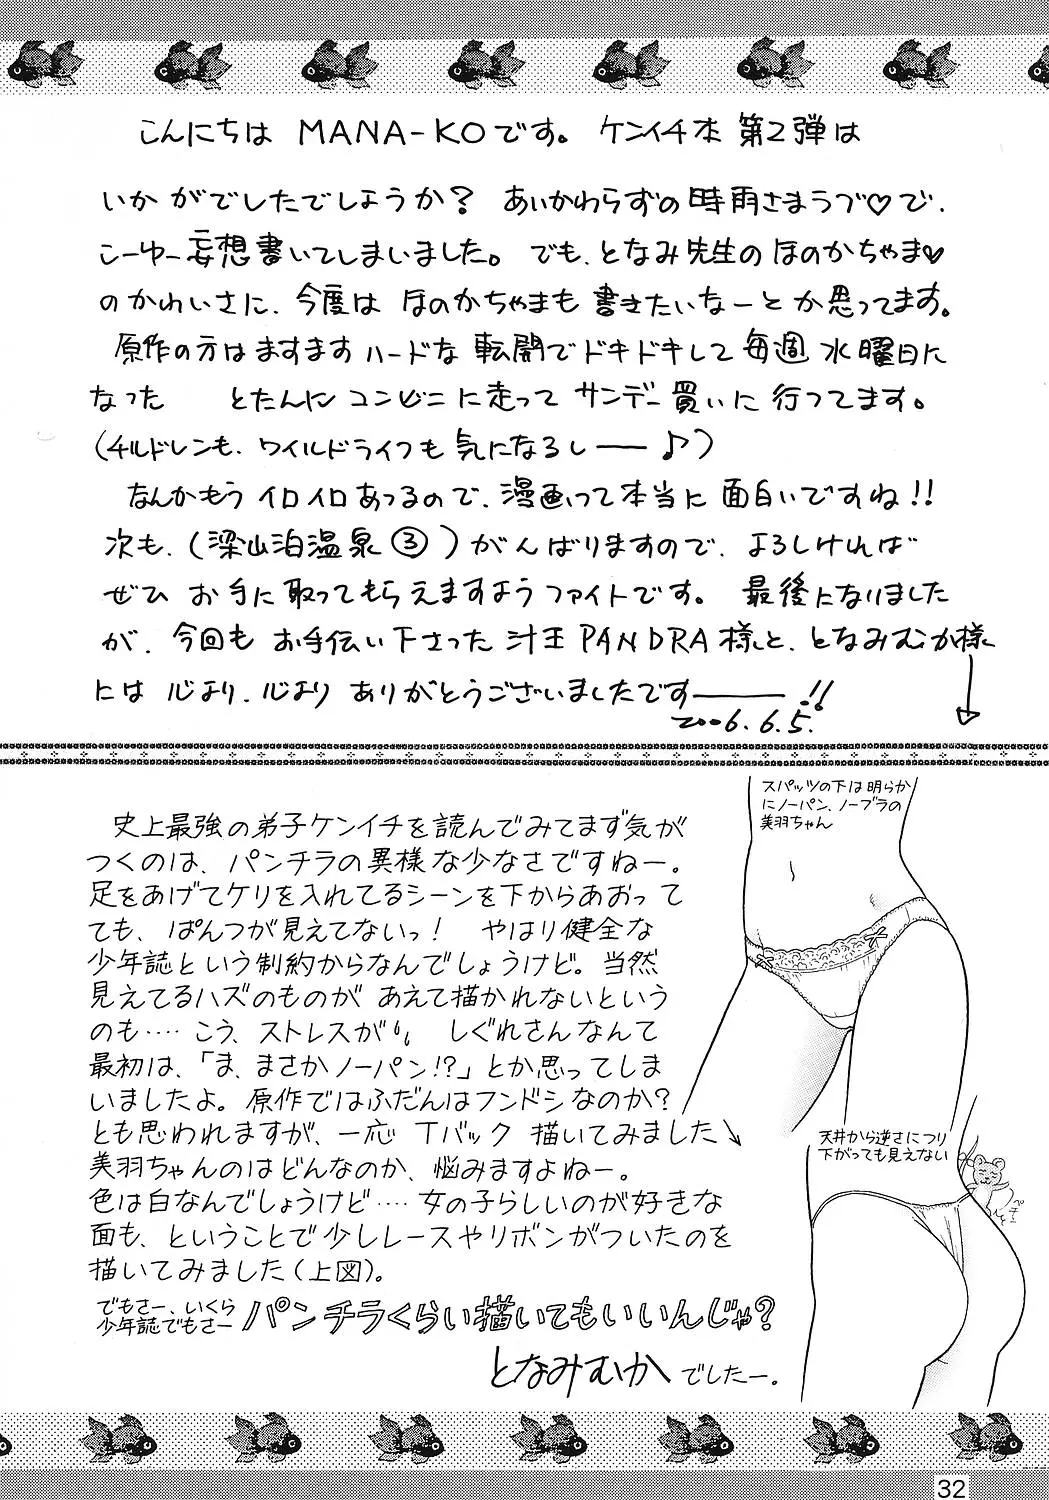 こんにちは MANA-KOです。 ケンイチ本 第2弾は
いかがでしたでしょうか? あいかわらずの時雨さまラブ♡で、
こーゆー妄想書いてしまいました。 でも、となみ先生のほのかちゃま♡
のかわいさに、今度は ほのかちゃまも 書きたいなーとか思ってます。
原作の方はますますハードな 転開でドキドキして毎週 水曜日に
なった とたんに コンビニに走って サンデー買いに行ってます。
(チルドレンも、ワイルドライフも気になるし――♪)
なんかもう イロイロあつるので、漫画って本当に 面白いですね!!
次も、(梁山泊温泉③)がんばりますので、よろしければ
ぜひ お手に取ってもらえますようファイトです。 最後になりました
が、今回も お手伝い下さった 汁王PANDRA様と、となみむか様
には 心より、心より ありがとうございましたです――!!
2006.6.5.
史上最強の弟子ケンイチを読んでみてまず気が
つくのは、パンチラの異様な少なさですねー。
足をあげてケリを入れてるシーンを下からあおって
ても、ぱんつが見えてないっ! やはり健全な
少年誌という制約からなんでしょうけど。当然
見えてるハズのものが あえて描かれないという
のも‥‥こう、ストレスが しぐれさんなんて
最初は、「ま、まさかノーパン!?」とか思ってしま
いましたよ。原作ではふだんはフンドシなのか?
とも思われますが、一応 Tバック 描いてみました↘
美羽ちゃんのはどんなのか、悩みますよねー。
色は白なんでしょうけど‥‥女の子らしいのが好きな
面も、ということで少しレースやリボンがついたのを
描いてみました(上図)。
でもさー、いくら
少年誌でもさー パンチラくらい描いてもいいんじゃ?
となみむか でしたー。
スパッツの下は明らか
にノーパン、ノーブラの
美羽ちゃん
天井から逆さにつり
下がっても見えない
32